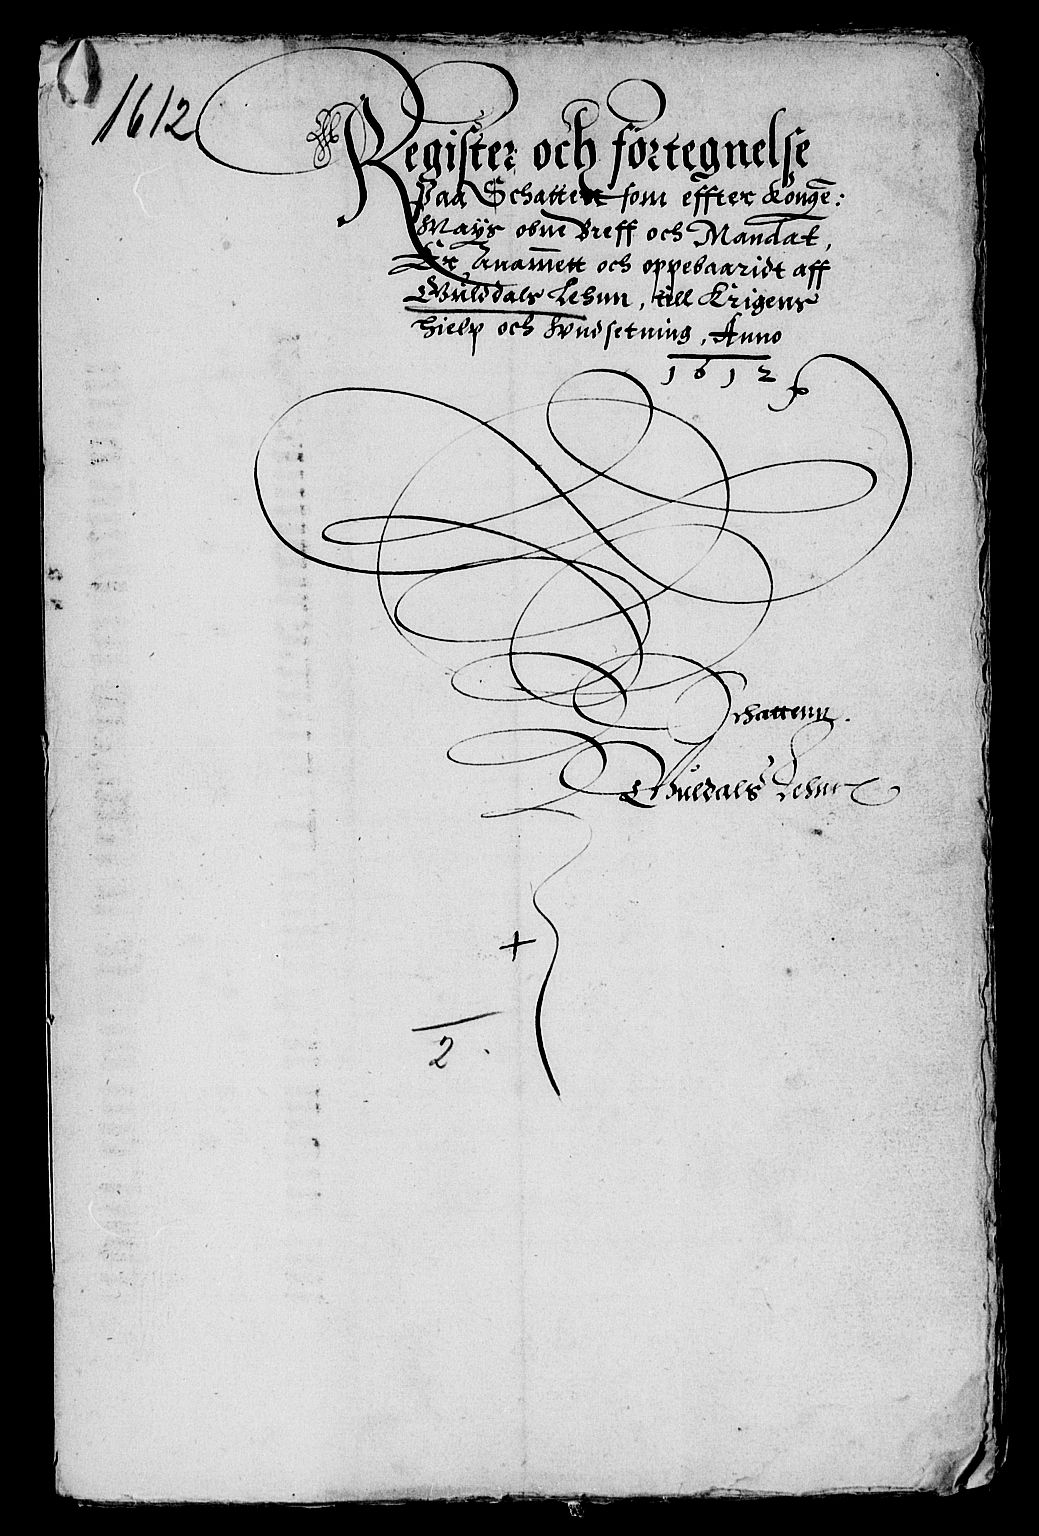 1612
Register och fortegnelse
Paa Schatten som effter Konge:
Mayts obne Breff och Mandat,
Er Anammett och oppebaaridt aff
Gulddals Lehnn, till Krigens
hielp och Undsetning, Anno
1612
Schattenn.
Guldals Lehnn
+
2.